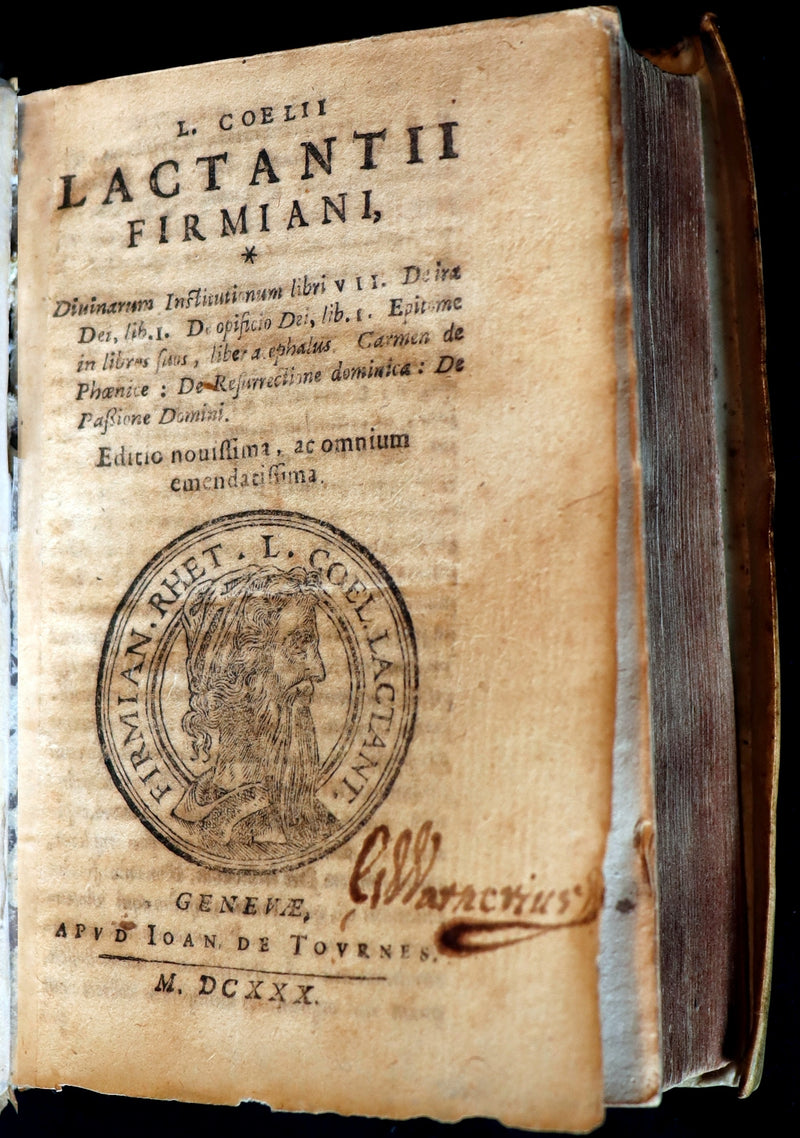 L. COELII
LACTANTII
FIRMIANI,
*
Diuinarum Inſtitutionum libri VII. De iræ
Dei, lib. I. De opificio Dei, lib. I. Epitome
in libros ſuos, liber acephalus. Carmen de
Phœnice : De Reſurrectione dominica : De
Paſſione Domini.
Editio nouiſſima, ac omnium
emendatiſſima.
FIRMIAN. RHET. L. COEL. LACTANT.
GWarnerius
GENEVÆ,
APVD IOAN. DE TOVRNES.
M. DCXXX.